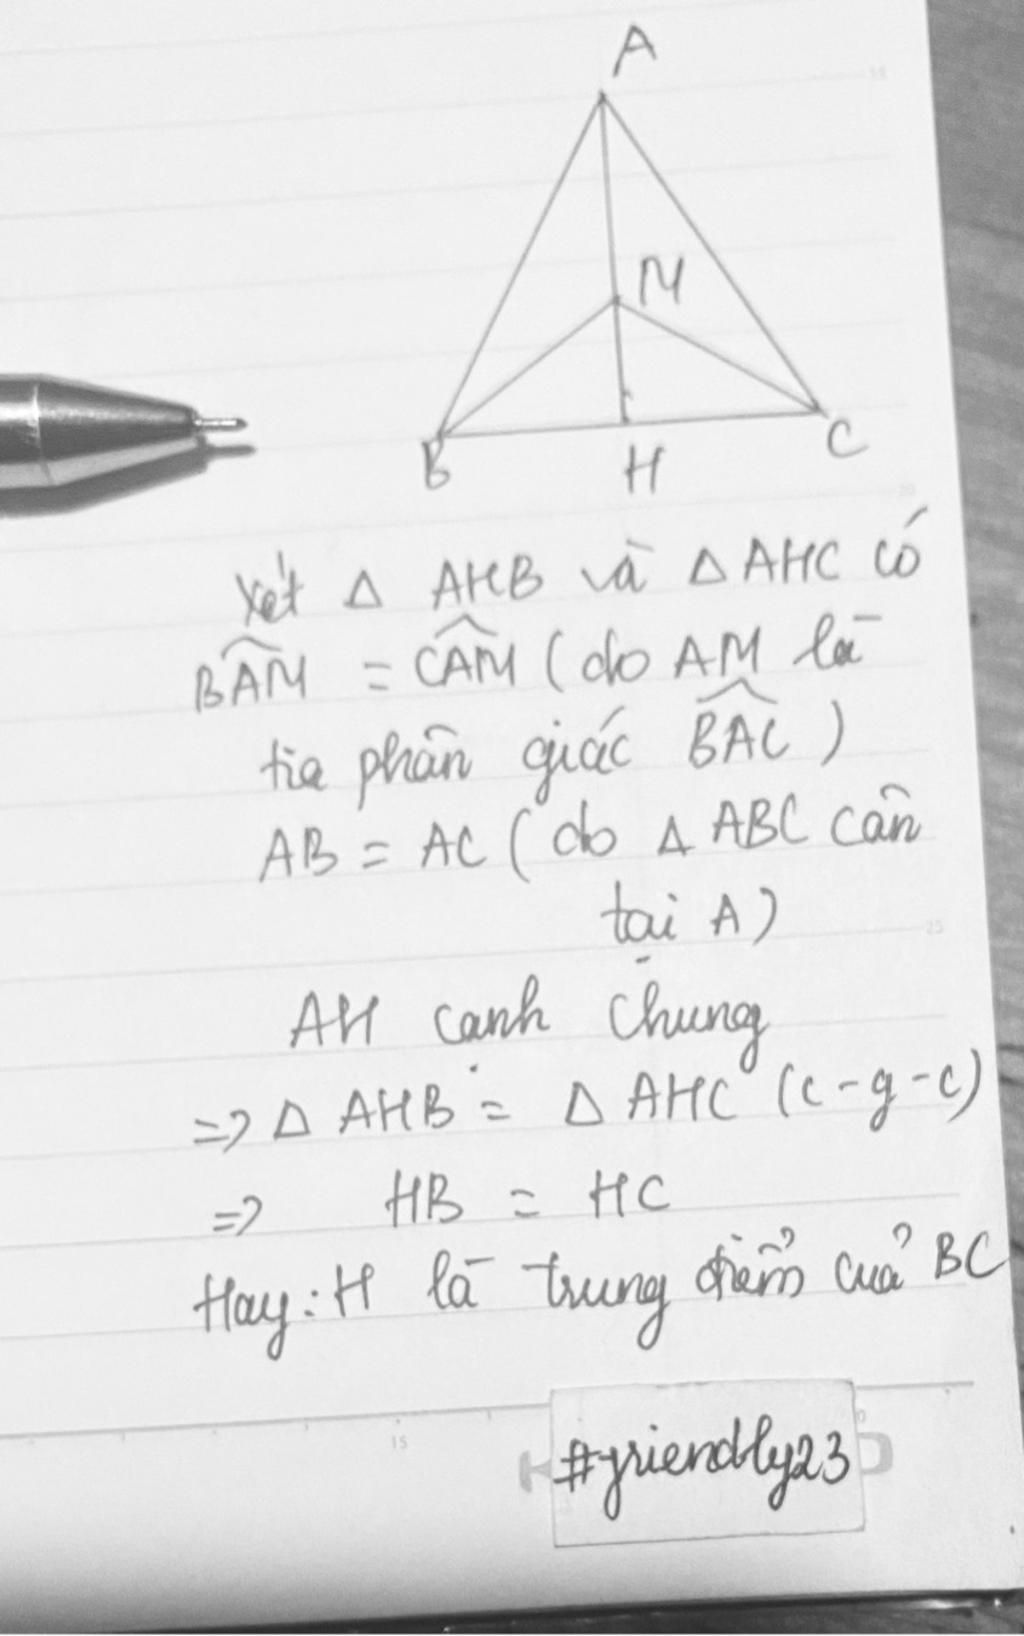 A
M
B
H
C
Xét Δ AHB và Δ AHC có
BAM = CAM ( do AM là
tia phân giác BAC )
AB = AC ( do Δ ABC cân
tại A )
AH cạnh chung
=> Δ AHB = Δ AHC (c-g-c)
=> HB = HC
Hay: H là trung điểm của BC
15
#friendly23